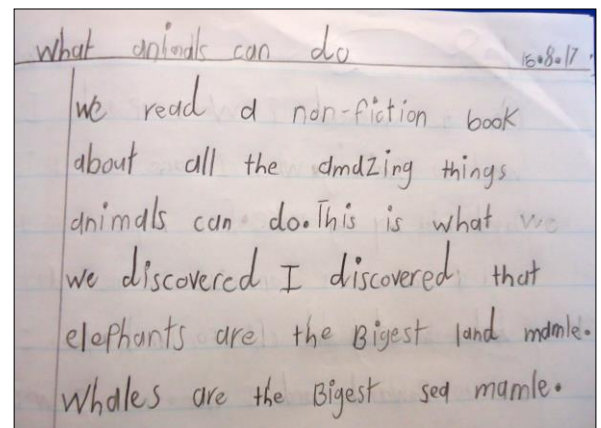 what animals can do 15.8.17
we read a non-fiction book
about all the amazing things
animals can do. This is what we
we discovered I discovered that
elephants are the Bigest land mamle.
Whales are the Bigest sea mamle.